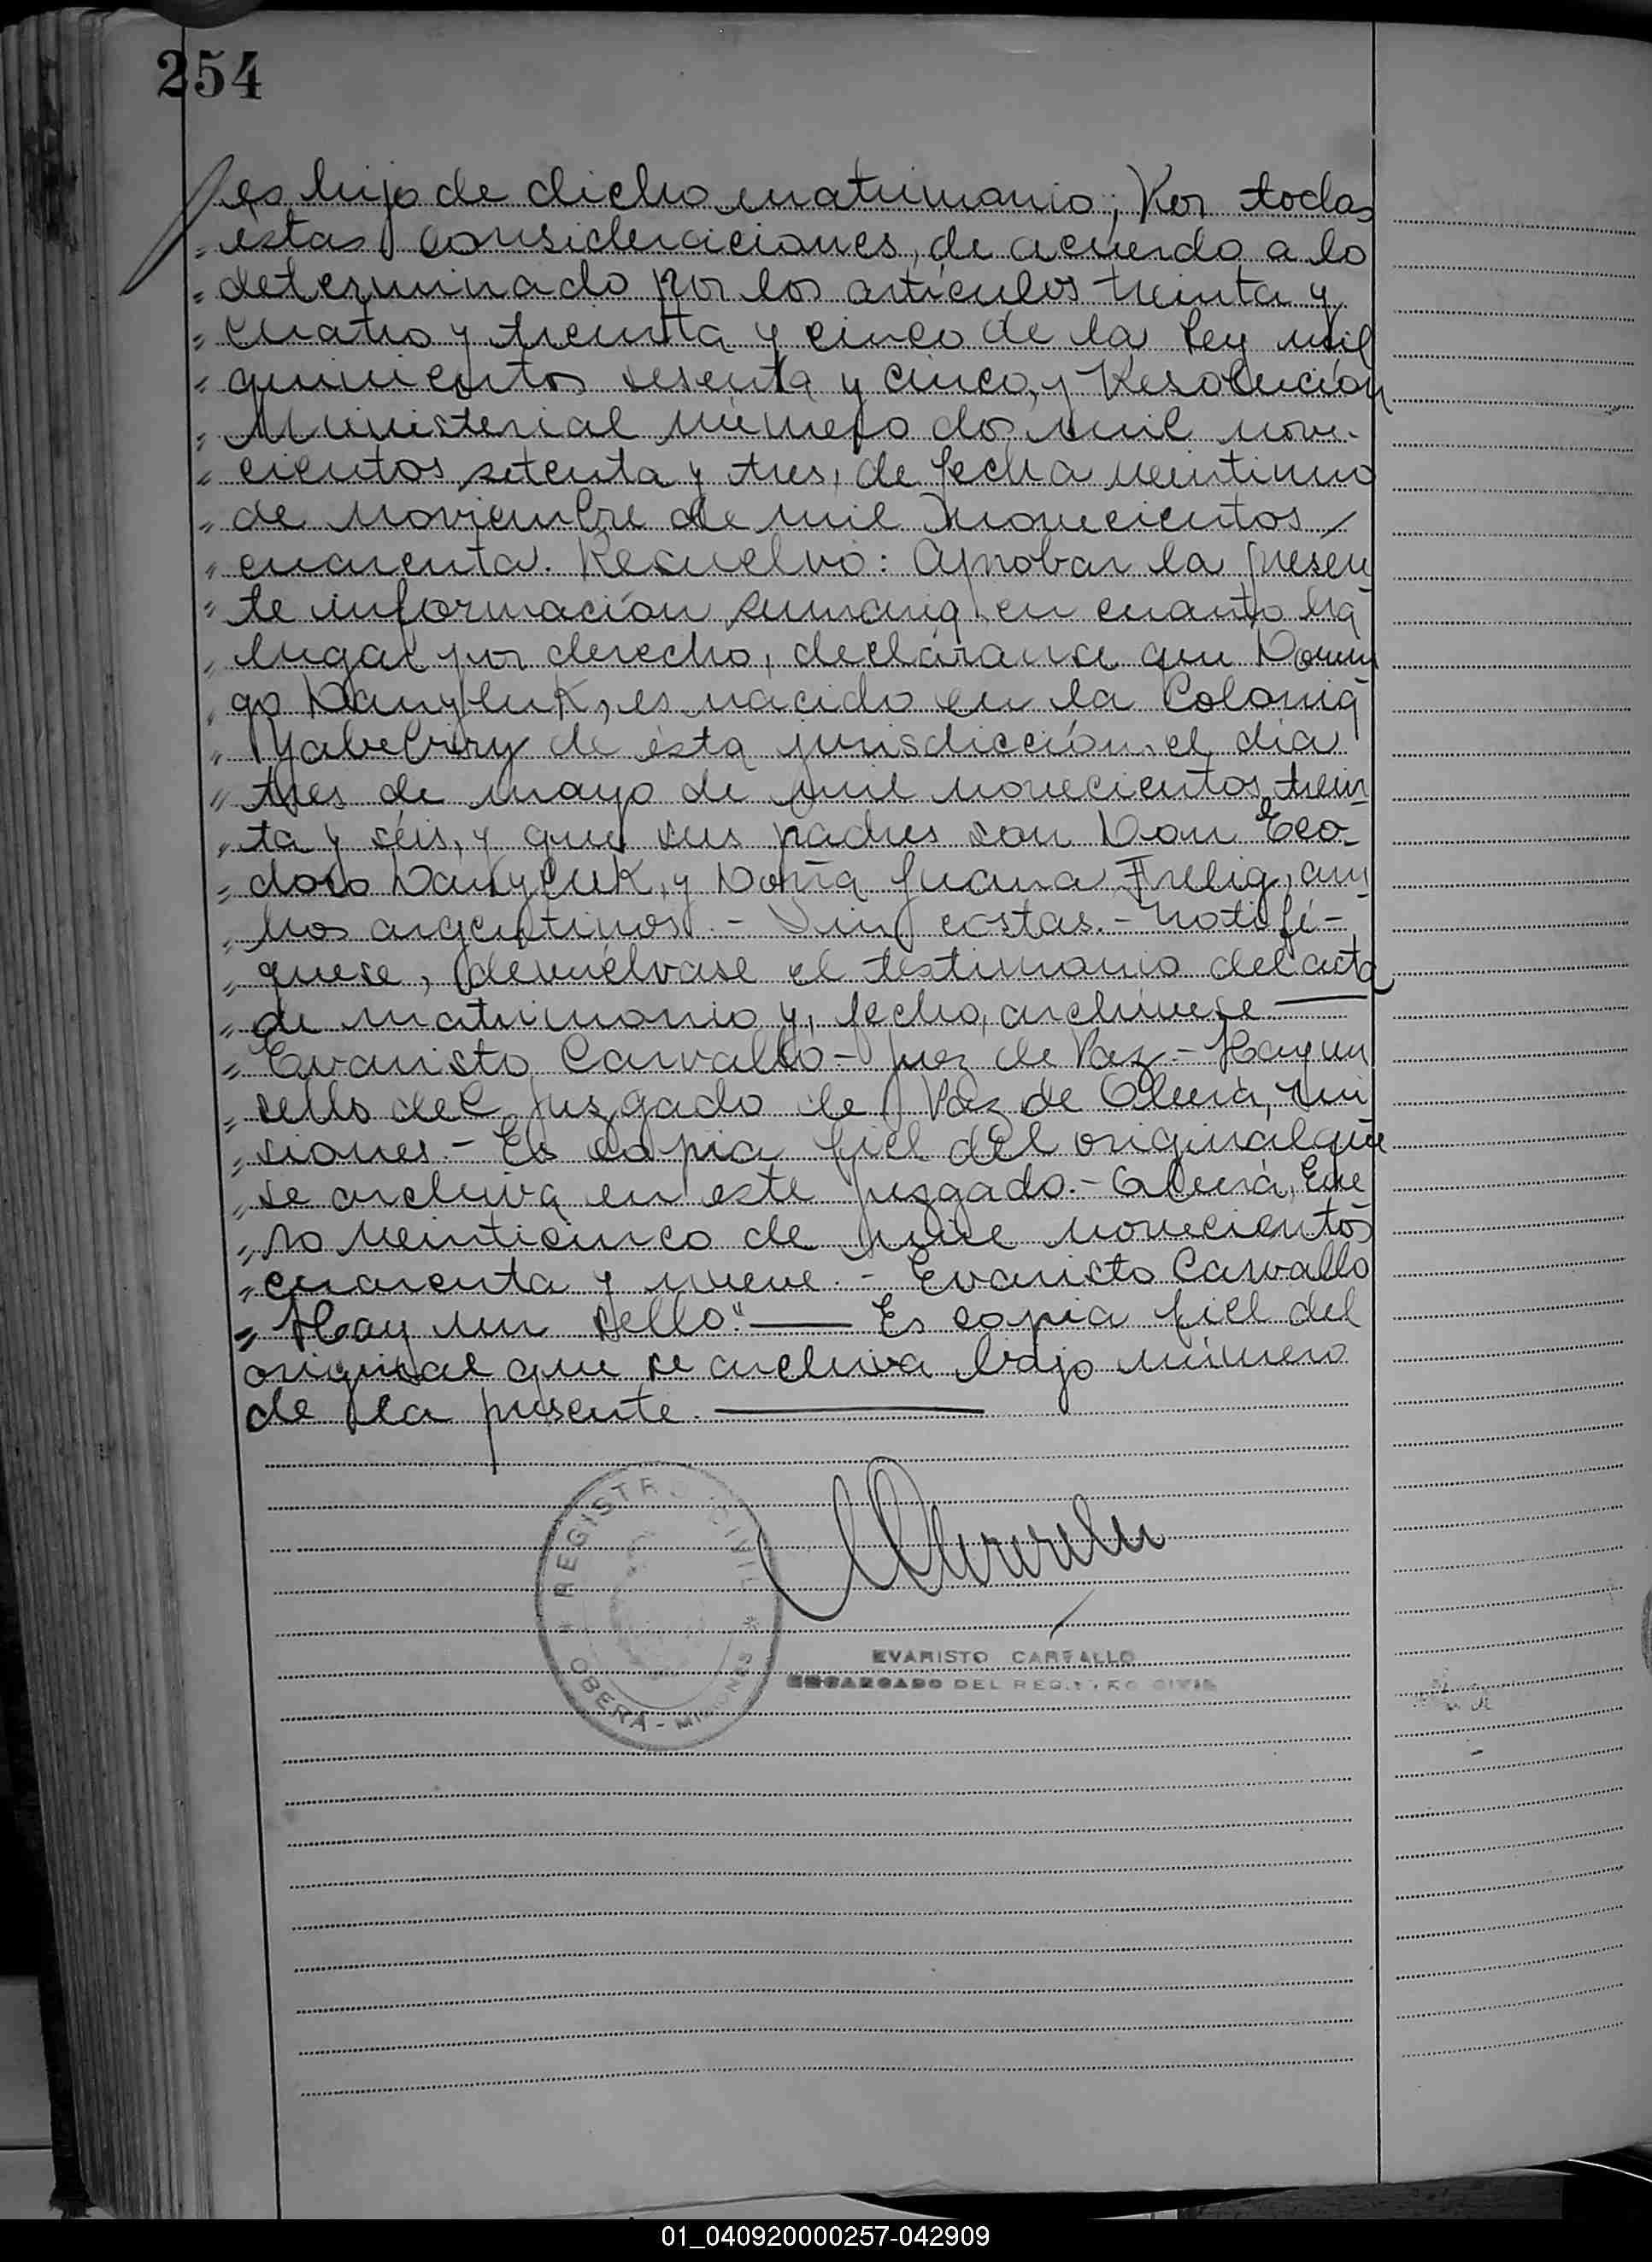 254
es hijo de dicho matrimonio; Por todas
" estas consideraciones, de acuerdo a lo
" determinado por los artículos treinta y
" cuatro y treinta y cinco de la Ley mil
" quinientos sesenta y cinco, y Resolución
" Ministerial número dos mil nove-
" cientos setenta y tres, de fecha veintiuno
" de noviembre de mil novecientos
" cuarenta. Resuelvo: Aprobar la presen
" te información sumaria en cuanto ha
" lugar por derecho, decláranse que Domin
" go Danyluk, es nacido en la Colonia
" Yabebiry de ésta jurisdicción, el día
" tres de mayo de mil novecientos trein-
" ta y séis, y que sus padres son Don Teo-
" doro Danyluk, y Doña Juana Frelig, am
" bos argentinos. - Sin costas. - Notifí-
" quese, devuélvase el testimonio del acta
" de matrimonio y, fecho, archívese
" Evaristo Carvallo - Juez de Paz. - Hay un
" sello del Juzgado de Paz de Oberá, Mi
" siones. - Es copia fiel del original que
" se archiva en este juzgado. - Oberá, Ene
" ro veinticinco de mil novecientos
" cuarenta y nueve. - Evaristo Carvallo
" Hay un sello". — Es copia fiel del
original que se archiva bajo número
de la presente. —
REGISTRO CIVIL
* OBERÁ - MISIONES *
EVARISTO CARVALLO
ENCARGADO DEL REGISTRO CIVIL
01_040920000257-042909